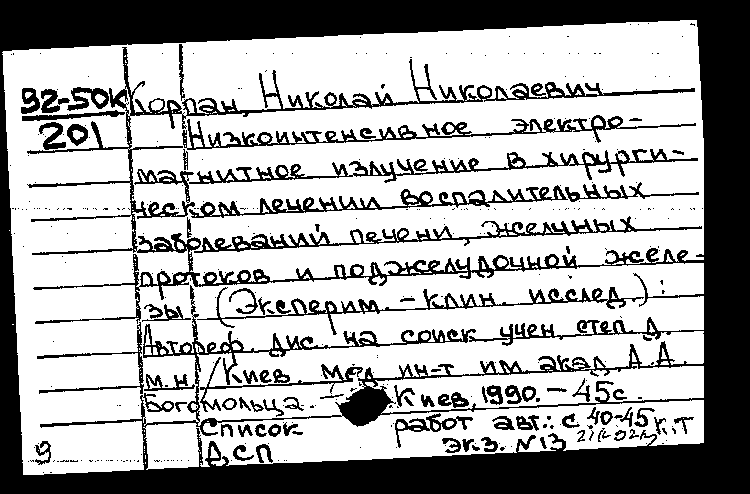 92-50К Корпан, Николай Николаевич
201 Низкоинтенсивное электро-
магнитное излучение в хирурги-
ческом лечении воспалительных
заболеваний печени, желчных
протоков и поджелудочной желе-
зы. (Эксперим. - клин. исслед.) :
Автореф. дис. на соиск учен. степ. д.
м. н. / Киев. мед. ин-т им. акад. А. А.
Богомольца. - Киев, 1990. - 45 с.
Список работ авт.: с 40-45 к.т
9 ДСП экз. N13